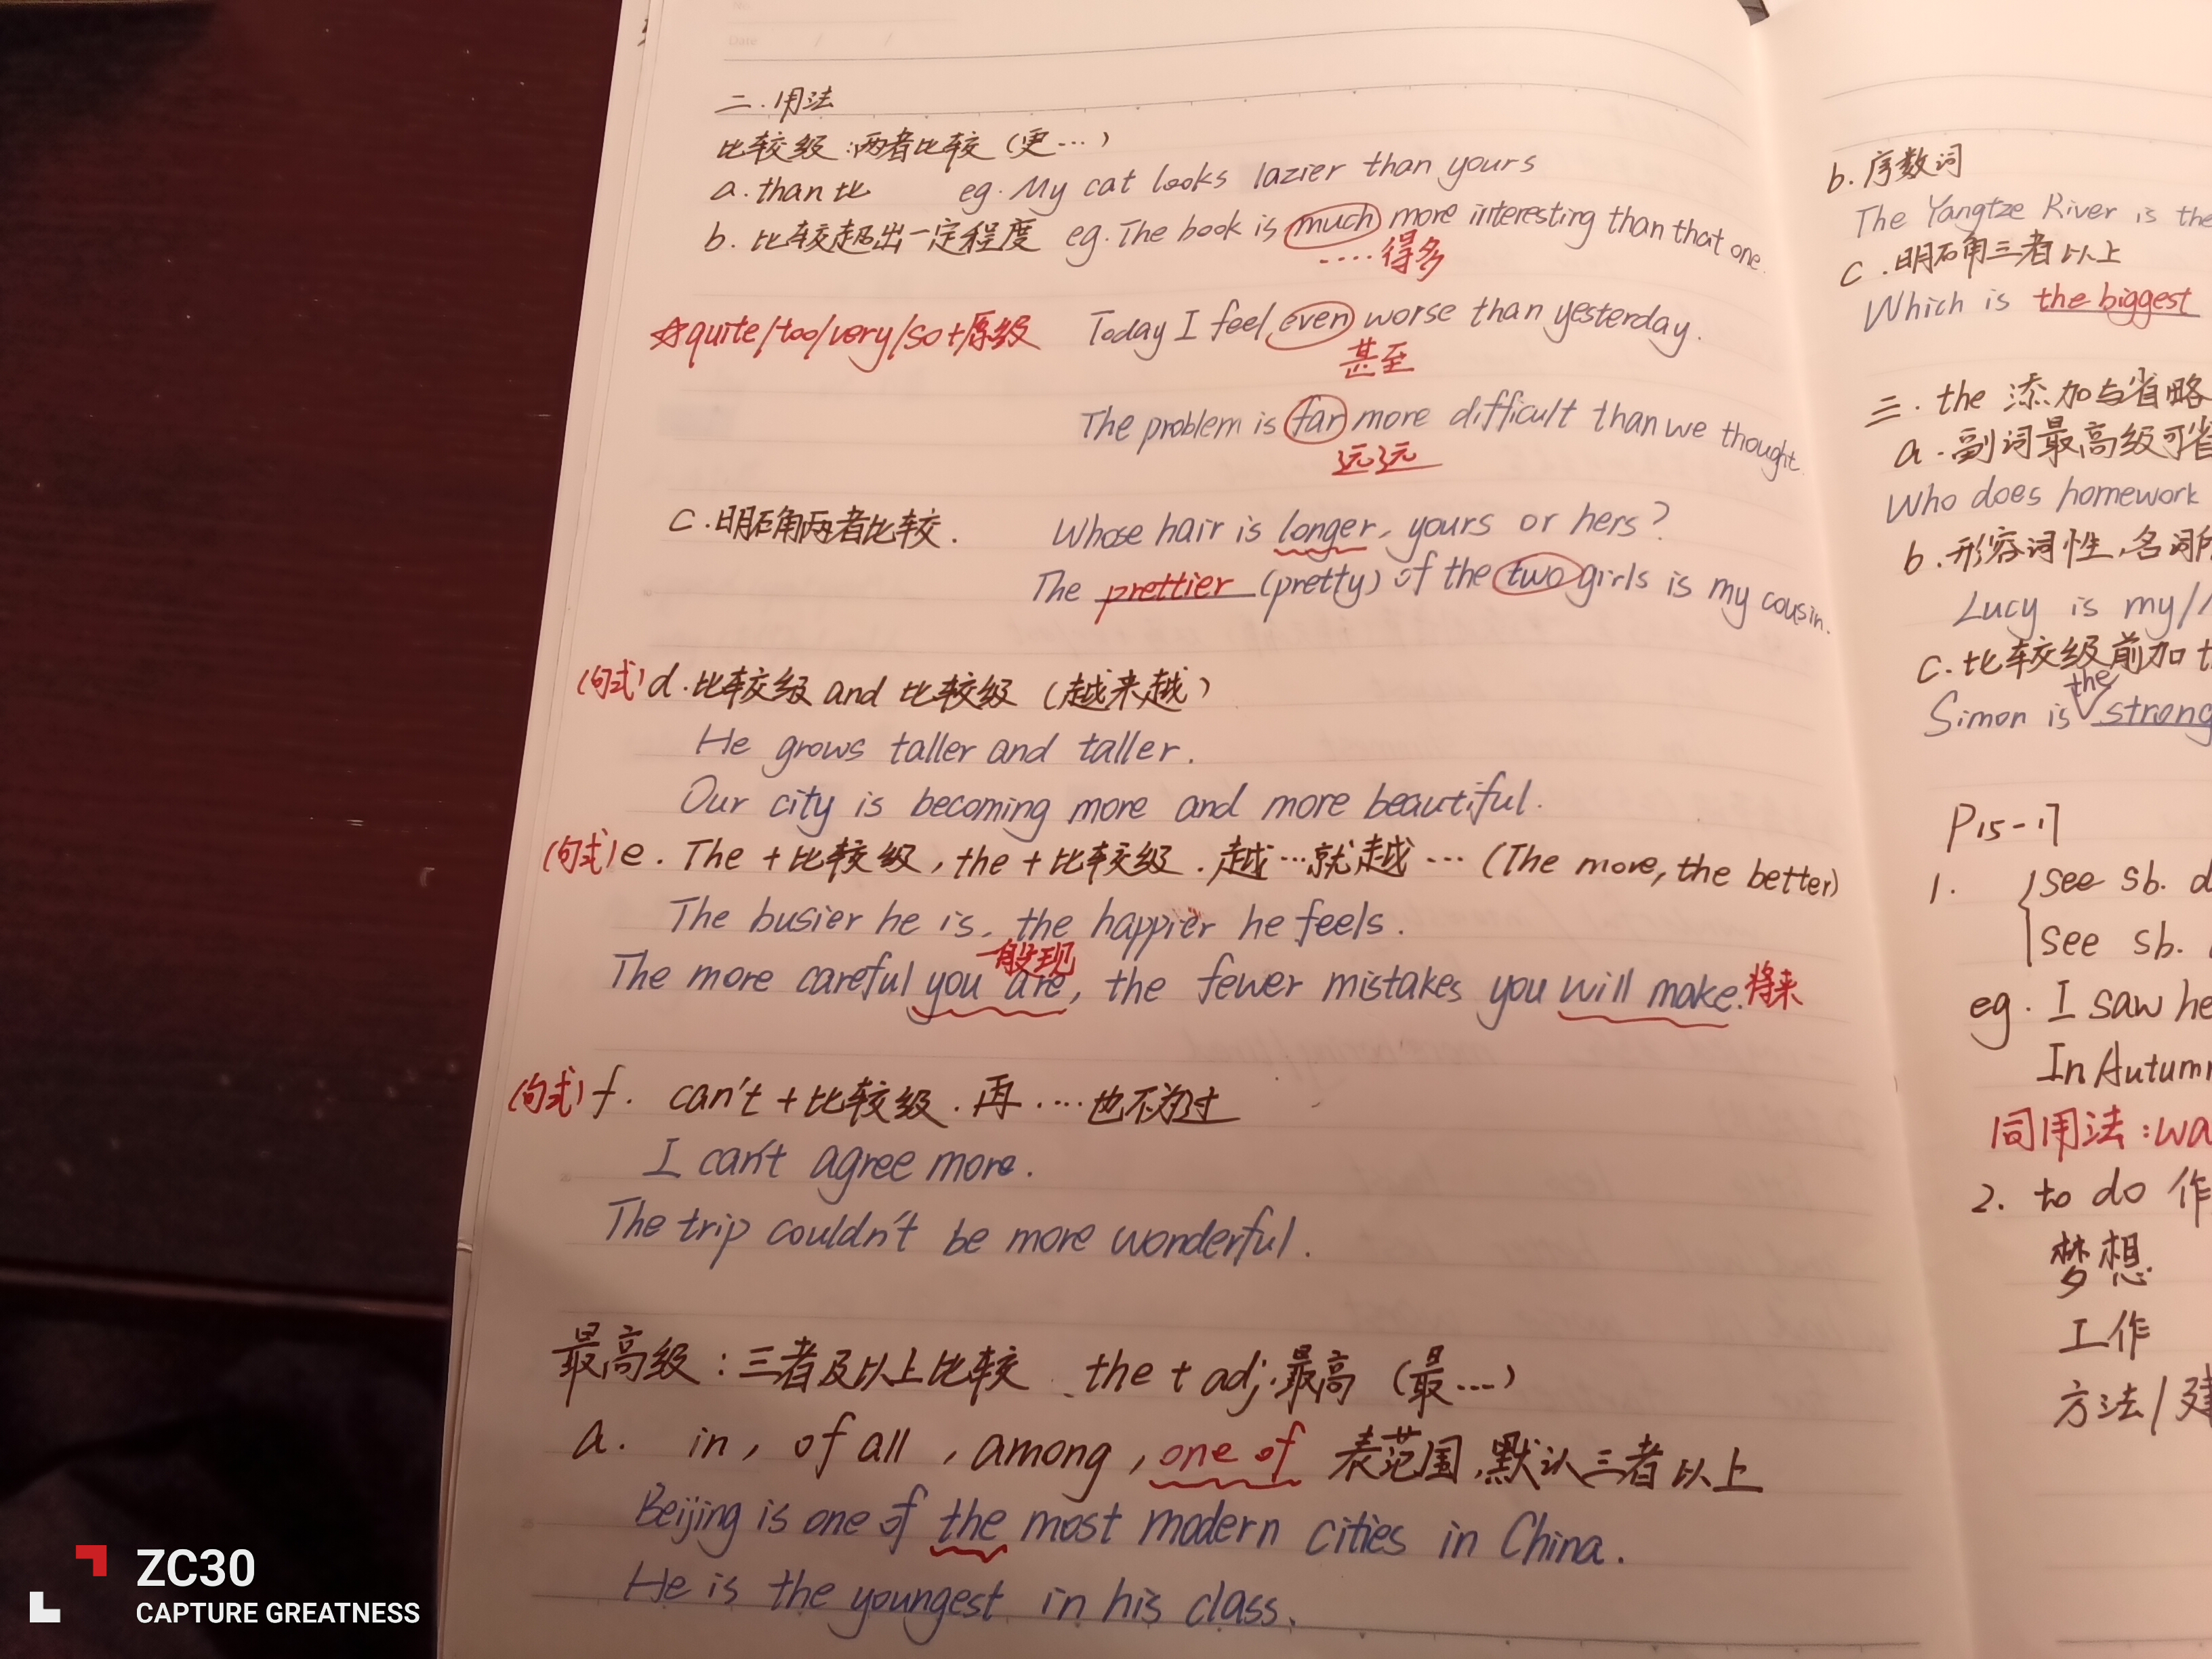 Date / /
二.用法
比较级:两者比较(更…)
a. than 比 eg. My cat looks lazier than yours
b. 比较超出一定程度 eg. The book is much more interesting than that one.
····得多
☆quite/too/very/so+原级 Today I feel even worse than yesterday.
甚至
The problem is far more difficult than we thought.
远远
c.明确两者比较. Whose hair is longer, yours or hers?
The prettier (pretty) of the two girls is my cousin.
(句式)d.比较级 and 比较级(越来越)
He grows taller and taller.
Our city is becoming more and more beautiful.
(句式)e. The +比较级,the +比较级.越…就越…(The more, the better)
The busier he is, the happier he feels.
一般现
The more careful you are, the fewer mistakes you will make.将来
(句式)f. can't +比较级.再····也不为过
I can't agree more.
The trip couldn't be more wonderful.
最高级:三者及以上比较 the + adj.最高(最…)
a. in, of all, among, one of 表范围,默认三者以上
Beijing is one of the most modern cities in China.
He is the youngest in his class.
b.序数词
The Yangtze River is the
c.明确三者以上
Which is the biggest
三. the 添加与省略
a.副词最高级可省
Who does homework
b.形容词性,名词所
Lucy is my/
c.比较级前加 t
the
Simon is strong
P15-17
1. see sb. d
see sb.
eg. I saw he
In Autumn
同用法:wa
2. to do 作
梦想
工作
方法/建
ZC30
CAPTURE GREATNESS